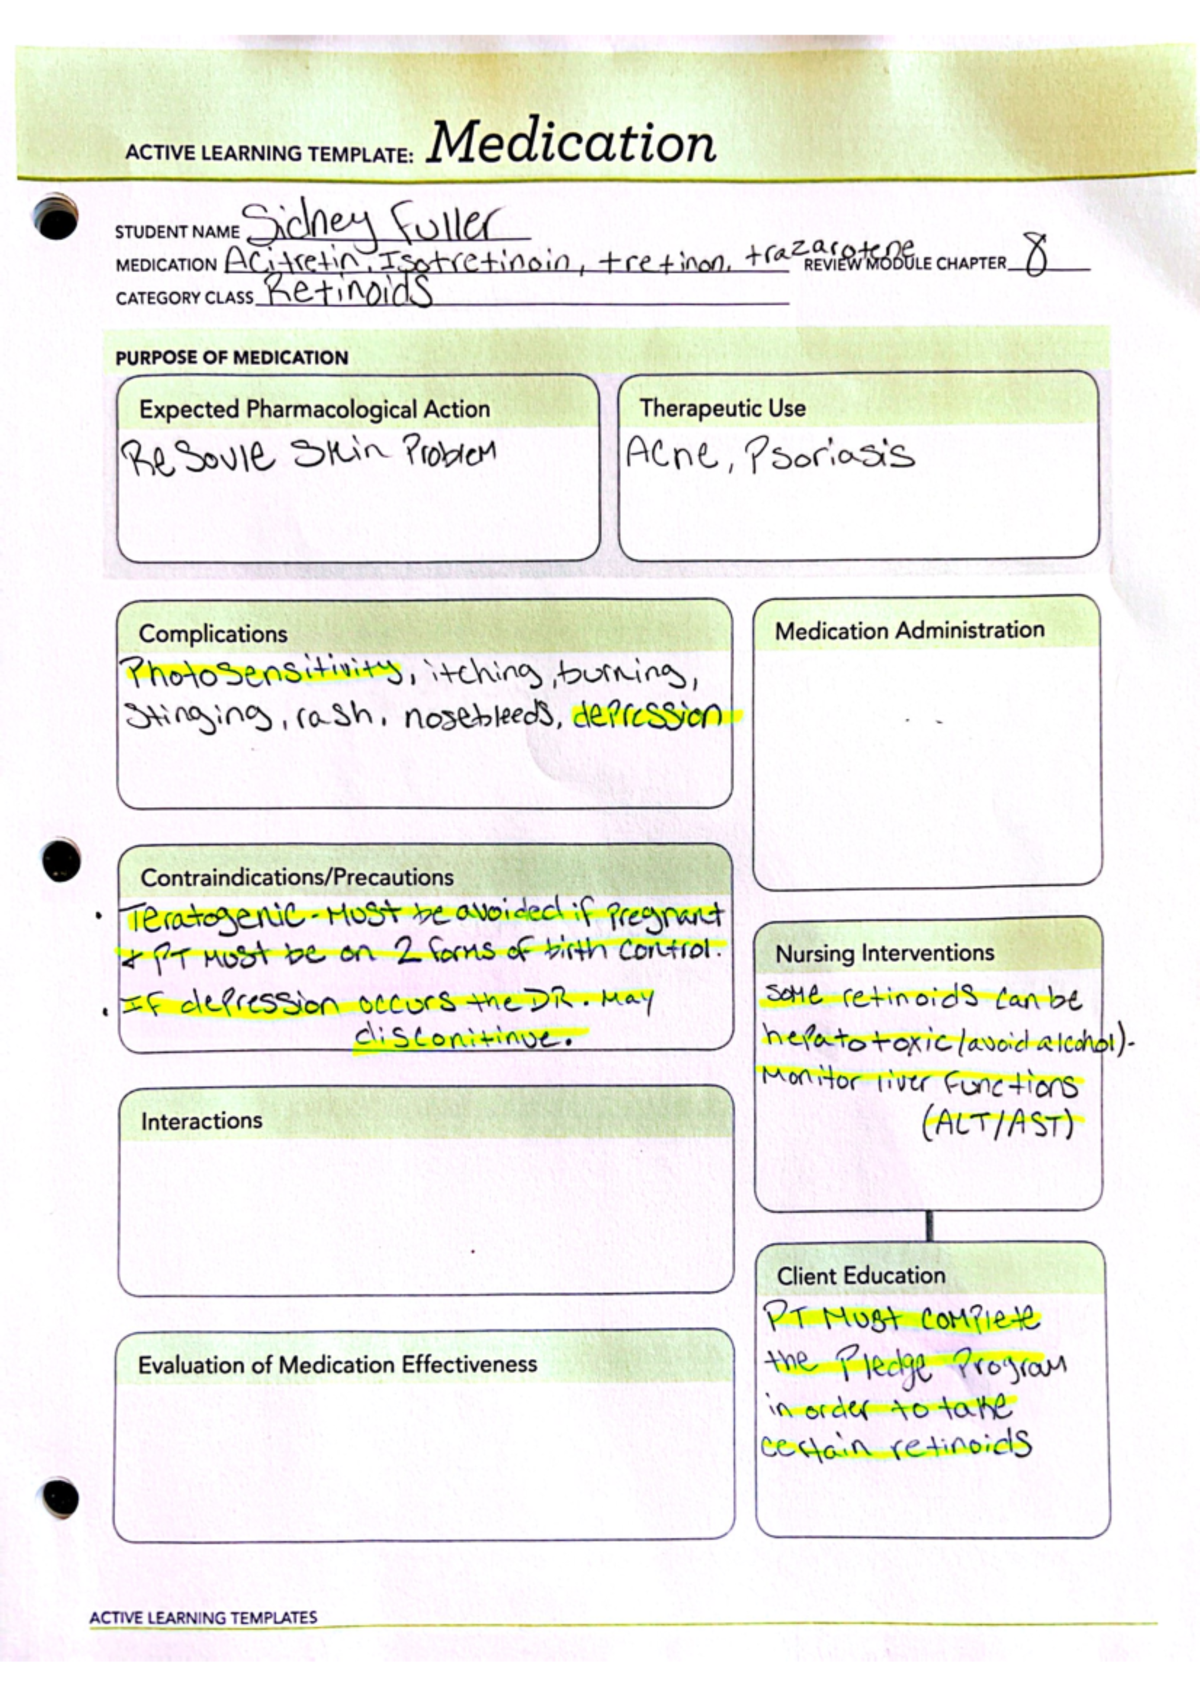 ACTIVE LEARNING TEMPLATE: Medication
STUDENT NAME Sidney Fuller
MEDICATION Acitretin, Isotretinoin, tretinon, trazarotene REVIEW MODULE CHAPTER 8
CATEGORY CLASS Retinoids
PURPOSE OF MEDICATION
Expected Pharmacological Action
ReSovle Skin Problem
Therapeutic Use
Acne, Psoriasis
Complications
Photosensitivity, itching, burning,
Stinging, rash, nosebleeds, depression
Medication Administration
Contraindications/Precautions
• Teratogenic - Must be avoided if pregnant
& PT must be on 2 forms of birth control.
• If depression occurs the DR. may
disconitinue.
Nursing Interventions
Some retinoids can be
hepatotoxic (avoid alcohol)-
Monitor liver functions
(ALT/AST)
Interactions
Client Education
PT Must complete
the Pledge Program
in order to take
certain retinoids
Evaluation of Medication Effectiveness
ACTIVE LEARNING TEMPLATES